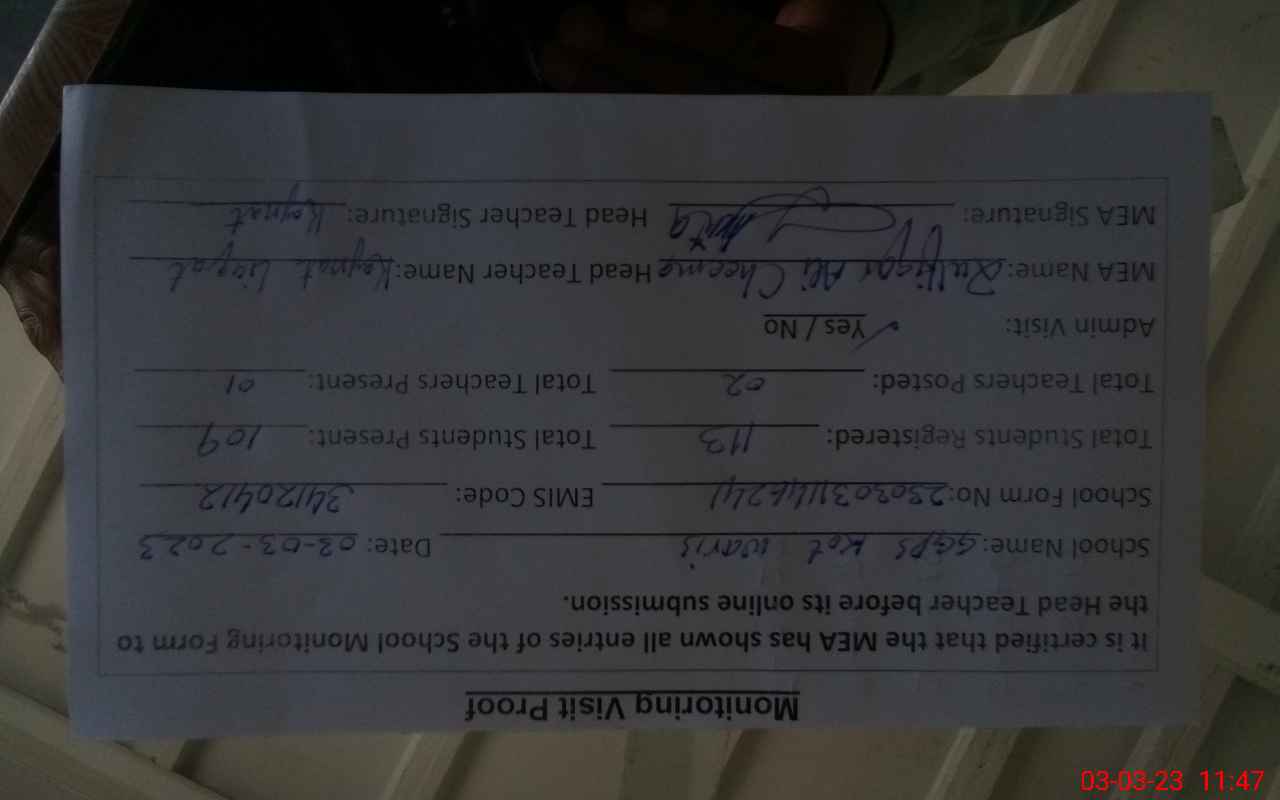 Monitoring Visit Proof
It is certified that the MEA has shown all entries of the School Monitoring Form to
the Head Teacher before its online submission.
School Name: GGPS Kot Waris Date: 03-03-2023
School Form No: EMIS Code: 34120412
Total Students Registered: 113 Total Students Present: 109
Total Teachers Posted: 02 Total Teachers Present: 01
Admin Visit: Yes / No
MEA Name: Zulfiqar Ali Cheema Head Teacher Name: Kaynat Liaqat
MEA Signature: Head Teacher Signature: Kaynat
03-03-23 11:47